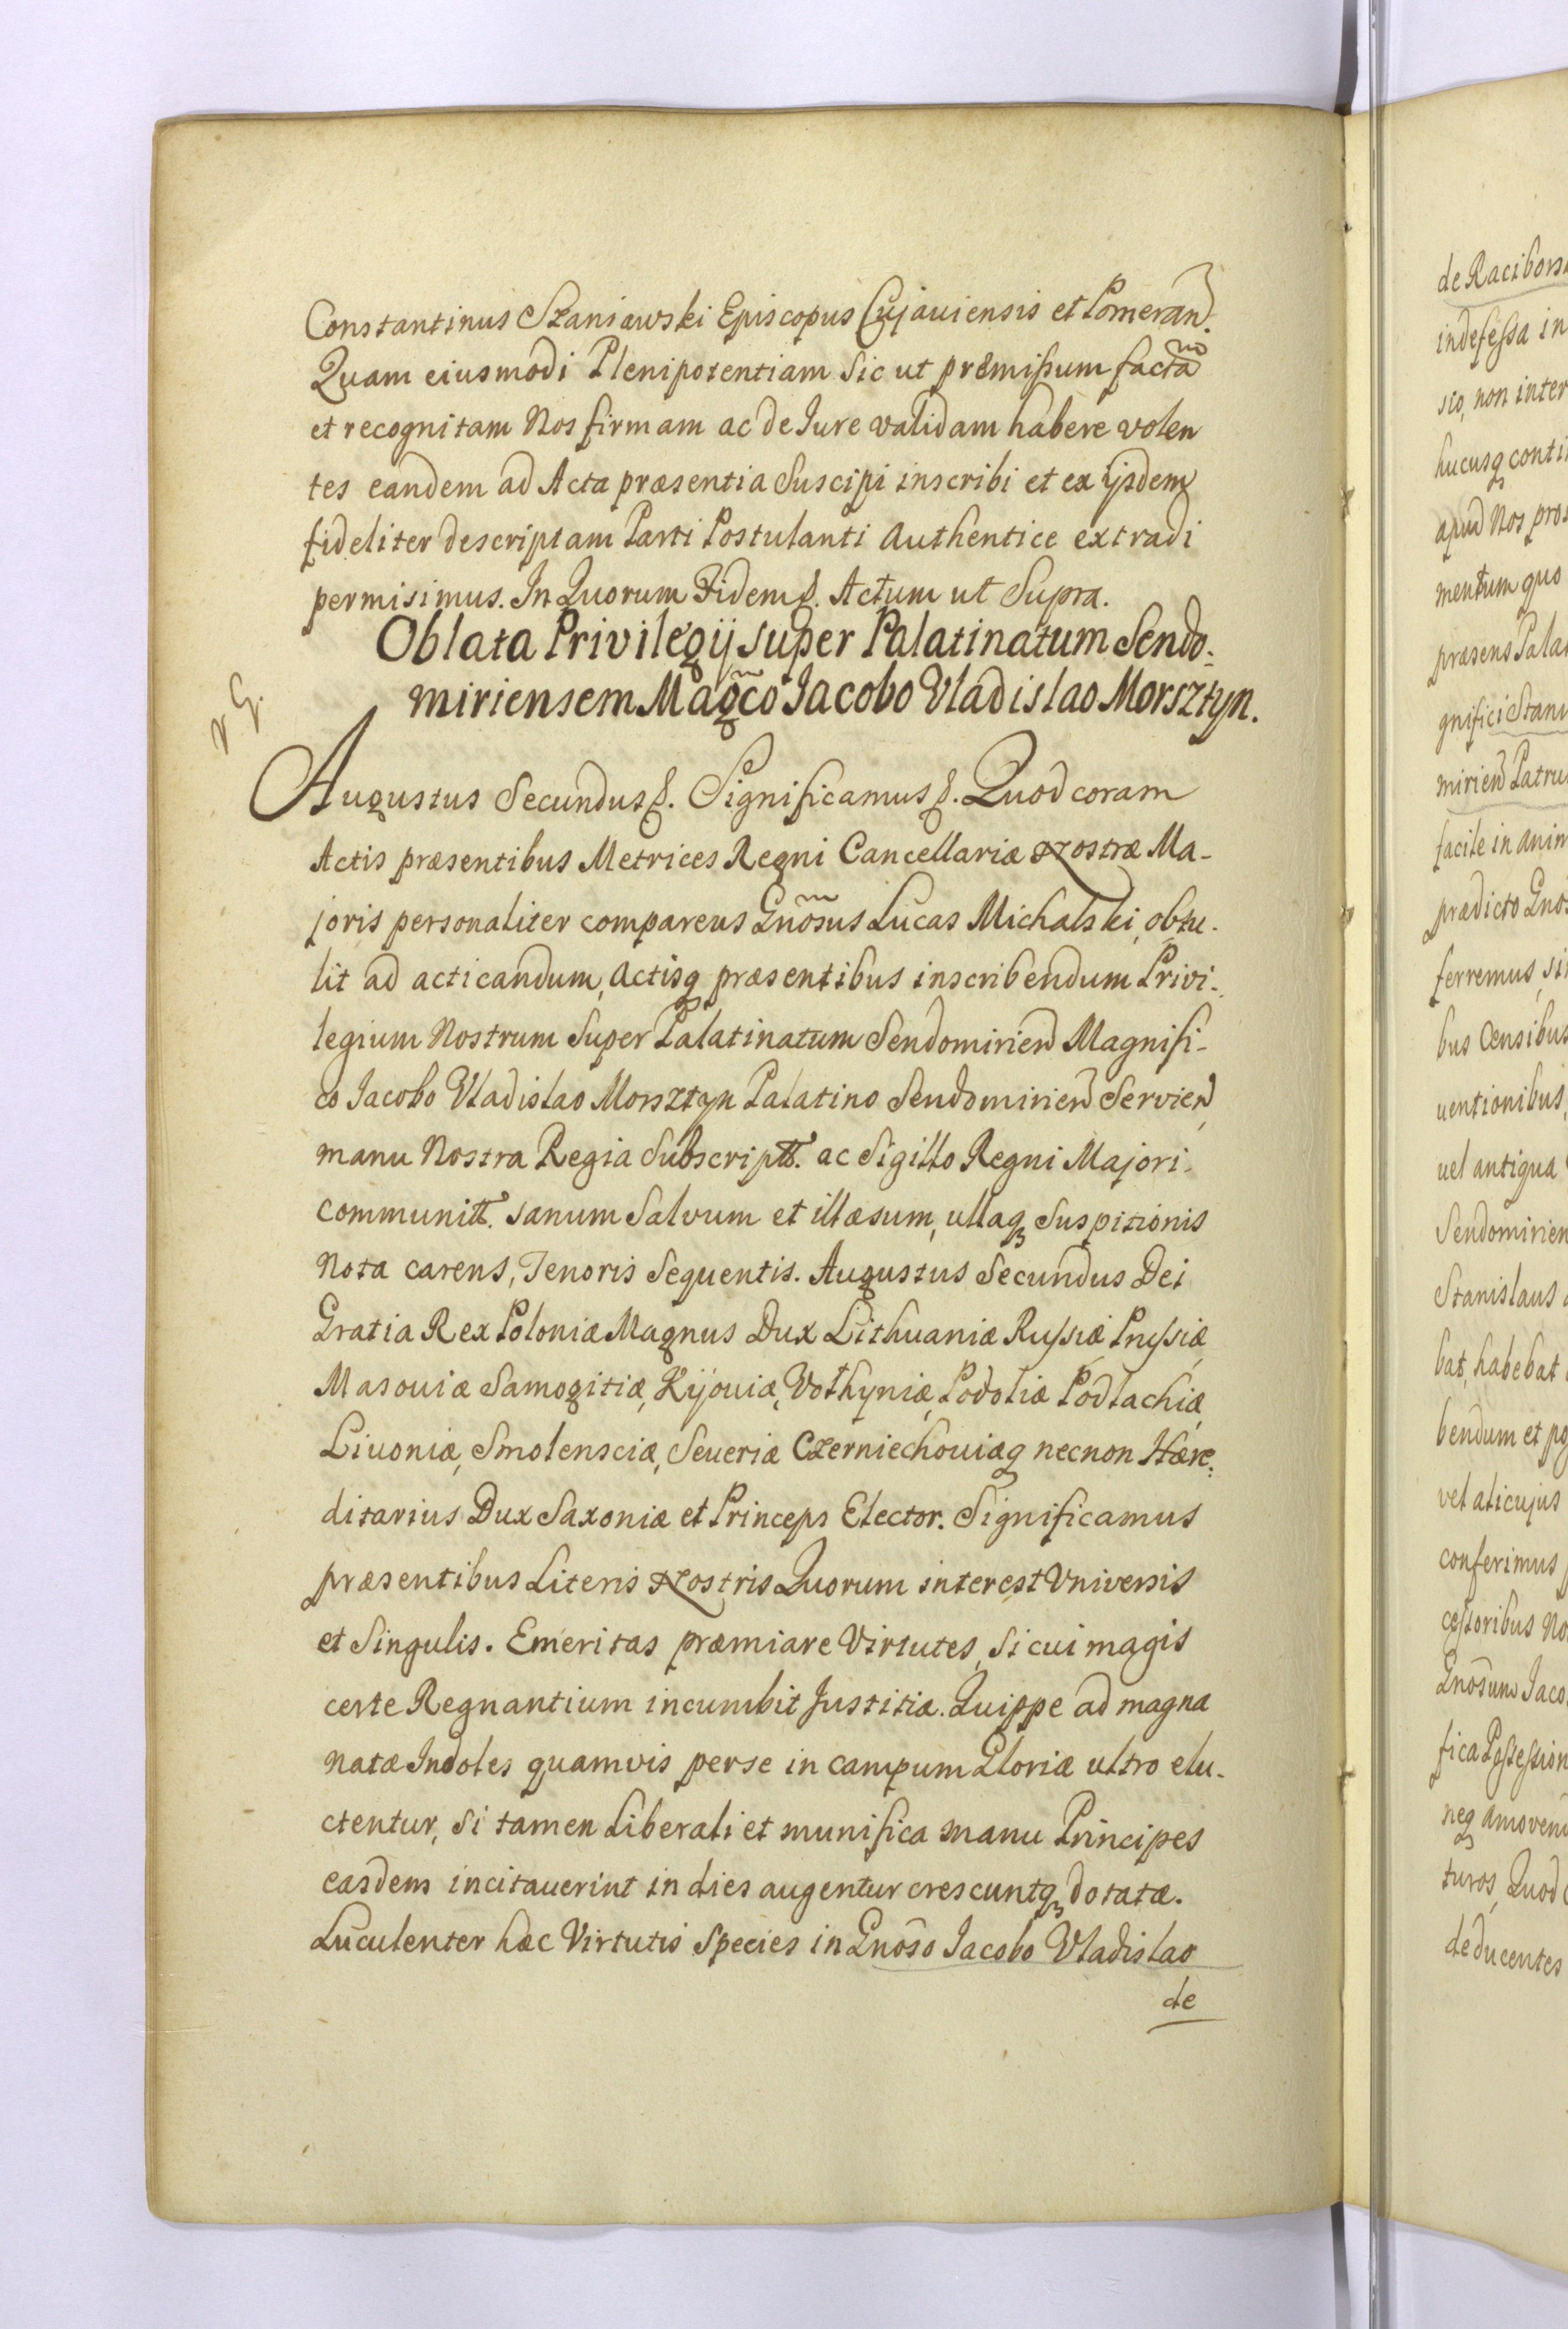 Constantinus Szaniawski Episcopus Cujaviensis et Pomeran.
Quam eiusmodi Plenipotentiam sic ut præmissum factam
et recognitam Nos firmam ac de Iure validam habere volen
tes eandem ad Acta præsentia Suscipi inscribi et ex ijsdem
fideliter descriptam Parti Postulanti Authentice extradi
permisimus. In Quorum Fidem &. Actum ut Supra.
Oblata Privilegij super Palatinatum Sendo:
miriensem Magco Iacobo Vladislao Morsztyn.
Augustus Secundus &. Significamus &. Quod coram
Actis præsentibus Metrices Regni Cancellariæ Nostræ Ma-
joris personaliter comparens Gnosus Lucas Michalski, obtu-
lit ad acticandum, actisq præsentibus inscribendum Privi-
legium Nostrum Super Palatinatum Sendomirien Magnifi-
co Iacobo Vladislao Morsztyn Palatino Sendomirien Servien,
manu Nostra Regia Subscriptt. ac Sigillo Regni Majori
communitt. sanum Salvum et illæsum, ullaq Suspitionis
Nota carens, Tenoris Sequentis. Augustus Secundus Dei
Gratia Rex Poloniæ Magnus Dux Lithuaniæ Russiæ Prussiæ,
Masouiæ Samogitiæ, Kijouiæ, Volhyniæ, Podoliæ Podlachiæ,
Liuoniæ, Smolensciæ, Seueriæ Czerniechouiæq necnon Hære:
ditarius Dux Saxoniæ et Princeps Elector. Significamus
præsentibus Literis Nostris Quorum interest Vniversis
et Singulis. Emeritas præmiare Virtutes, si cui magis
certe Regnantium incumbit Justitiæ. Quippe ad magna
Natæ Indoles quamvis perse in campum Gloriæ ultro elu-
ctentur, si tamen Liberali et munifica manu Principes
easdem incitauerint in dies augentur crescuntq dotatæ.
Luculenter hæc Virtutis Species in Gnoso Iacobo Vladislao
de
de Racibors
indefessa in
sio, non inter
hucusq conti
apud Nos pro
mentum quo
præsens Pala
gnifici Stani
mirien Patru
facile in anim
prædicto Gno
ferremus, si
bus Censibus
uentionibus,
uel antiqua
Sendomirien
Stanislaus
bat, habebat
bendum et po
vel alicujus
conferimus
cessoribus No
Gnosum Iaco
fica Possession
neq amoven
turos, Quod
deducentes